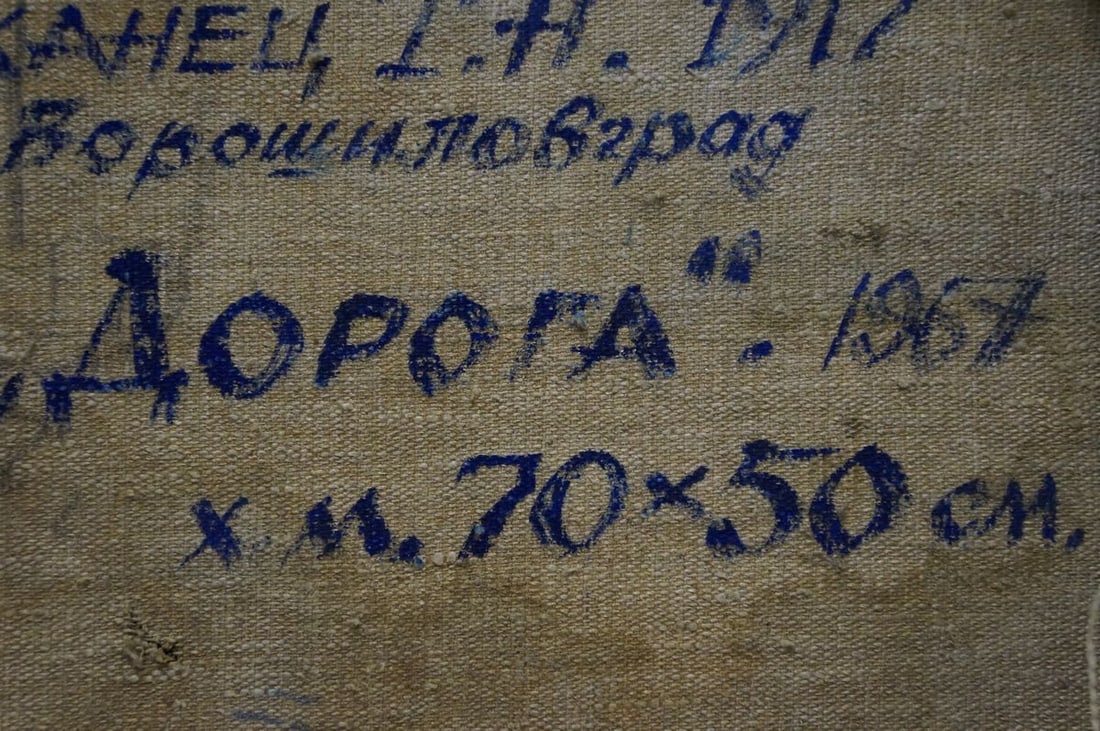 КАНЕЦ Г.Н. 1917
Ворошиловград
„ДОРОГА“. 1967
х.м. 70×50 см.